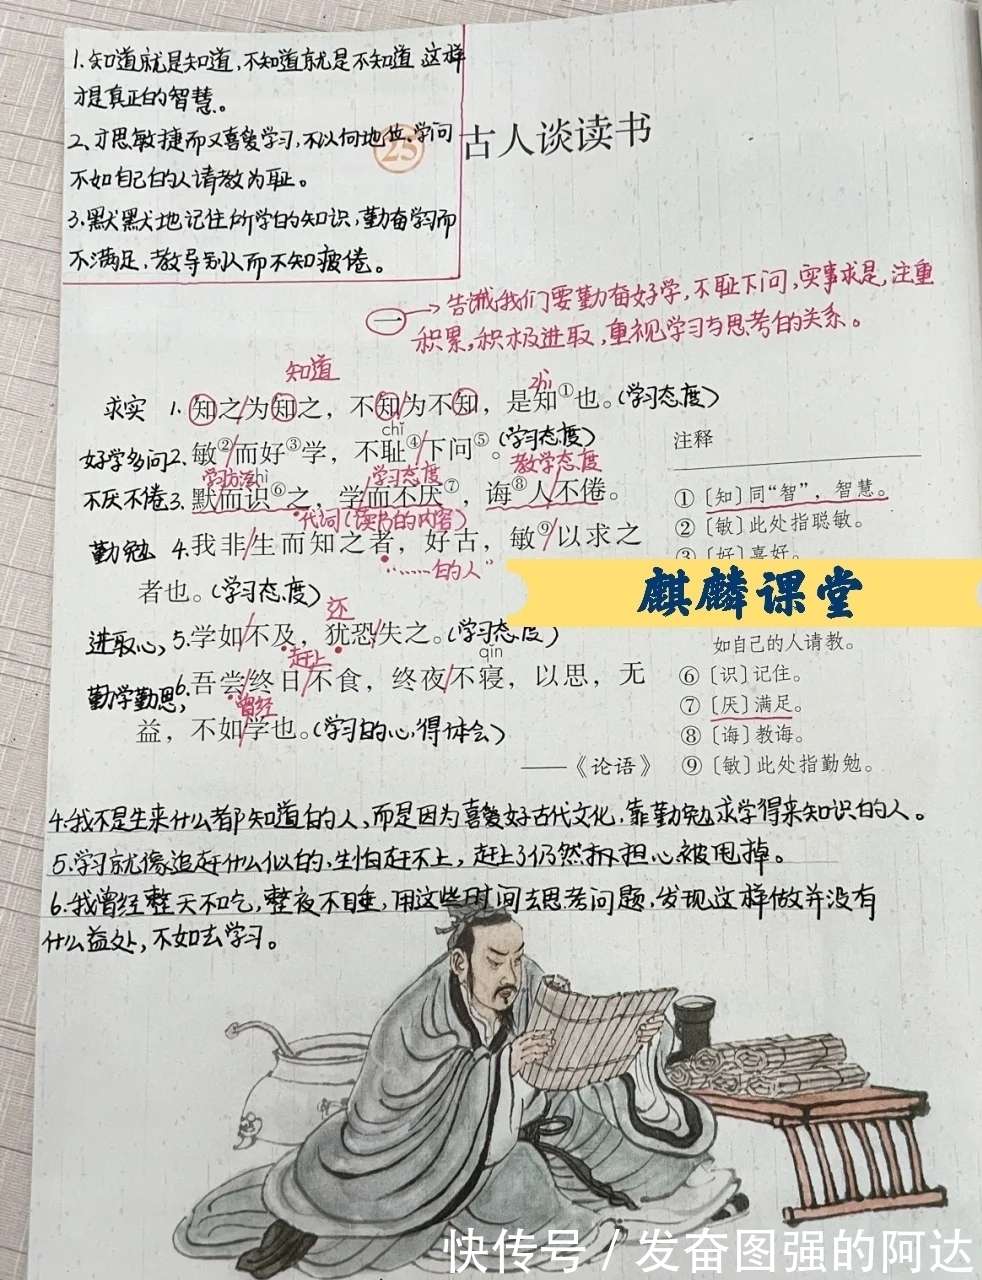 1.知道就是知道,不知道就是不知道 这样
才是真正的智慧。
2.才思敏捷而又喜爱学习,不以向地位、学问
不如自己的人请教为耻。
3.默默地记住所学的知识,勤奋学习而
不满足,教导别人而不知疲倦。
25 古人谈读书
一→告诫我们要勤奋好学,不耻下问,实事求是,注重
积累,积极进取,重视学习与思考的关系。
知道
zhì
求实 1.知之/为知之,不知/为不知,是知①也。(学习态度)
chǐ
好学多问2.敏②/而好③学,不耻④/下问⑤。(学习态度)
学习方法 zhì 学习态度 教学态度
不厌不倦3.默而识⑥之,学/而不厌⑦,诲⑧人/不倦。
代词(读书的内容)
勤勉 4.我非/生而知之者,好古,敏⑨/以求之
“……的人”
者也。(学习态度)
还
进取心,5.学如/不及,犹恐/失之。(学习态度)
赶上 qǐn
勤学勤思,6.吾尝/终日/不食,终夜/不寝,以思,无
曾经
益,不如/学也。(学习的心得体会)
——《论语》
注释
①〔知〕同“智”,智慧。
②〔敏〕此处指聪敏。
③〔好〕喜好。
麒麟课堂
如自己的人请教。
⑥〔识〕记住。
⑦〔厌〕满足。
⑧〔诲〕教诲。
⑨〔敏〕此处指勤勉。
4.我不是生来什么都知道的人,而是因为喜爱好古代文化,靠勤勉求学得来知识的人。
5.学习就像追赶什么似的,生怕赶不上,赶上了仍然担心被甩掉。
6.我曾经整天不吃,整夜不睡,用这些时间去思考问题,发现这样做并没有
什么益处,不如去学习。
快传号/发奋图强的阿达